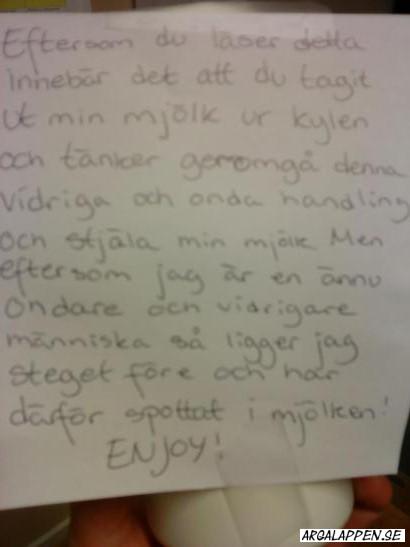 Eftersom du läser detta
innebär det att du tagit
ut min mjölk ur kylen
och tänker genomgå denna
vidriga och onda handling
och stjäla min mjölk Men
eftersom jag är en ännu
ondare och vidrigare
människa så ligger jag
steget före och har
därför spottat i mjölken!
ENJOY!
ARGALAPPEN.SE